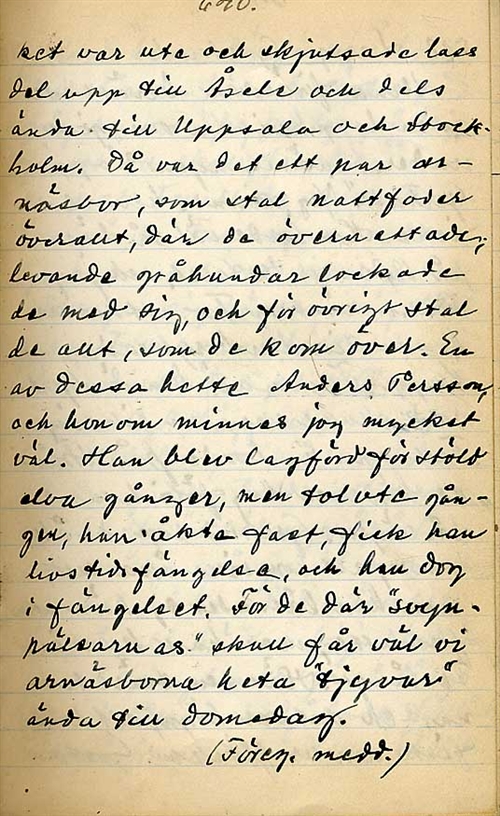 ket var ute och skjutsade lass
del upp till Åsele och dels
ända till Uppsala och Stock-
holm. Då var det ett par ar-
näsbor, som stal nattfoder
överallt, där de övernattade;
levande gråhundar lockade
de med sig, och för övrigt stal
de allt, som de kom över. En
av dessa hette Anders Persson,
och honom minnes jag mycket
väl. Han blev lagförd för stöld
elva gånger, men tolvte gån-
gen, han åkte fast, fick han
livstidsfängelse, och han dog
i fängelset. För de där
skull får väl vi
arnäsborna heta "tjyvar"
ända till domedag.
(Föreg. medd.)